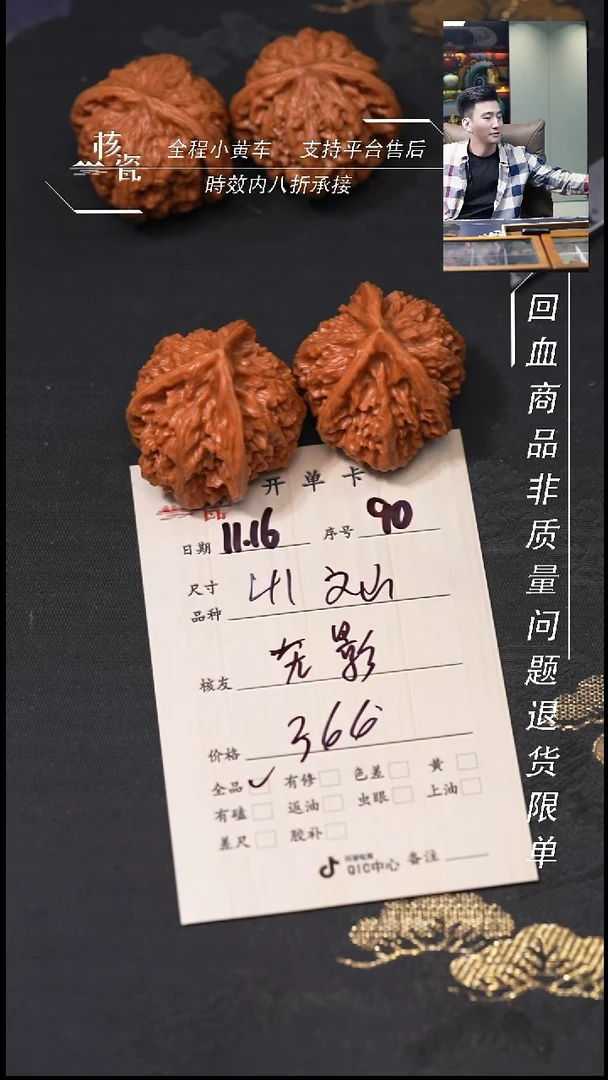 核瓷
全程小黄车 支持平台售后
時效内八折承接
回血商品非质量问题退货限单
开单卡
日期 11.16 序号 90
尺寸
品种
核友 无影
价格 366
全品 ✓ 有修 色差 黄
有磕 返油 虫眼 上油
差尺 胶补
QIC中心 备注